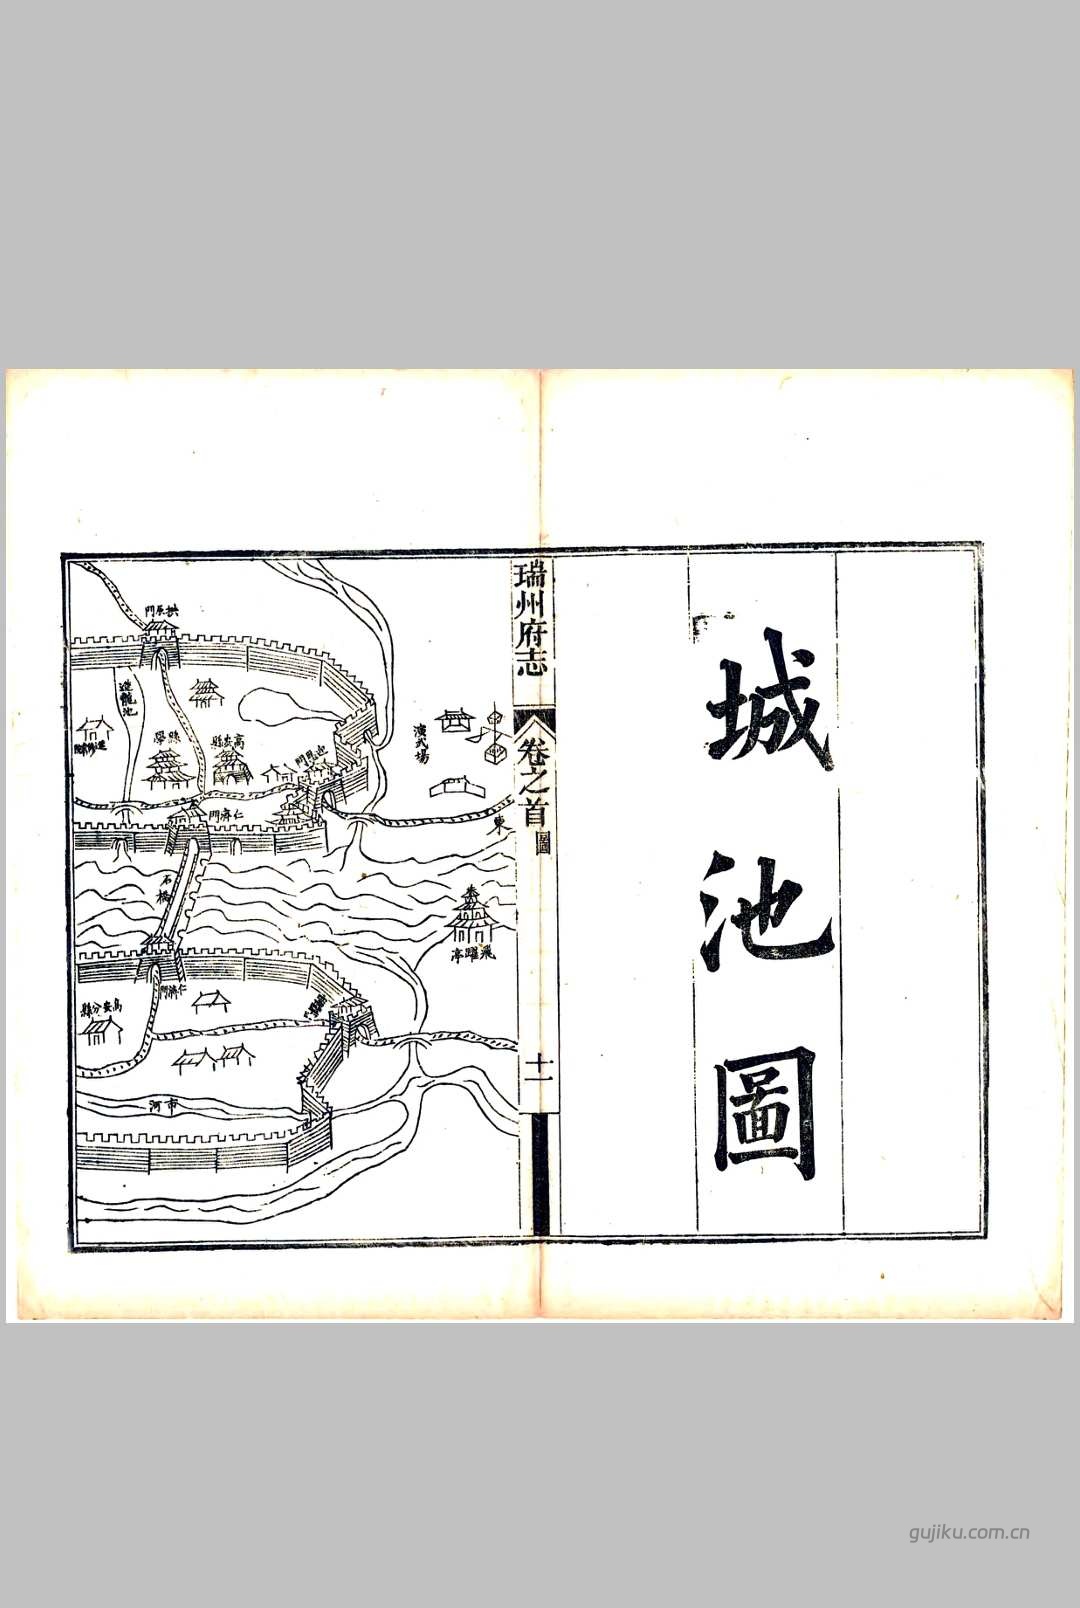 城池圖
瑞州府志
卷之首
圖
十一
拱辰門
進龍池
縣學
高安縣
迎恩門
演武場
仁濟門
東
石橋
飛躍亭
仁濟門
高安分縣
市河
gujiku.com.cn